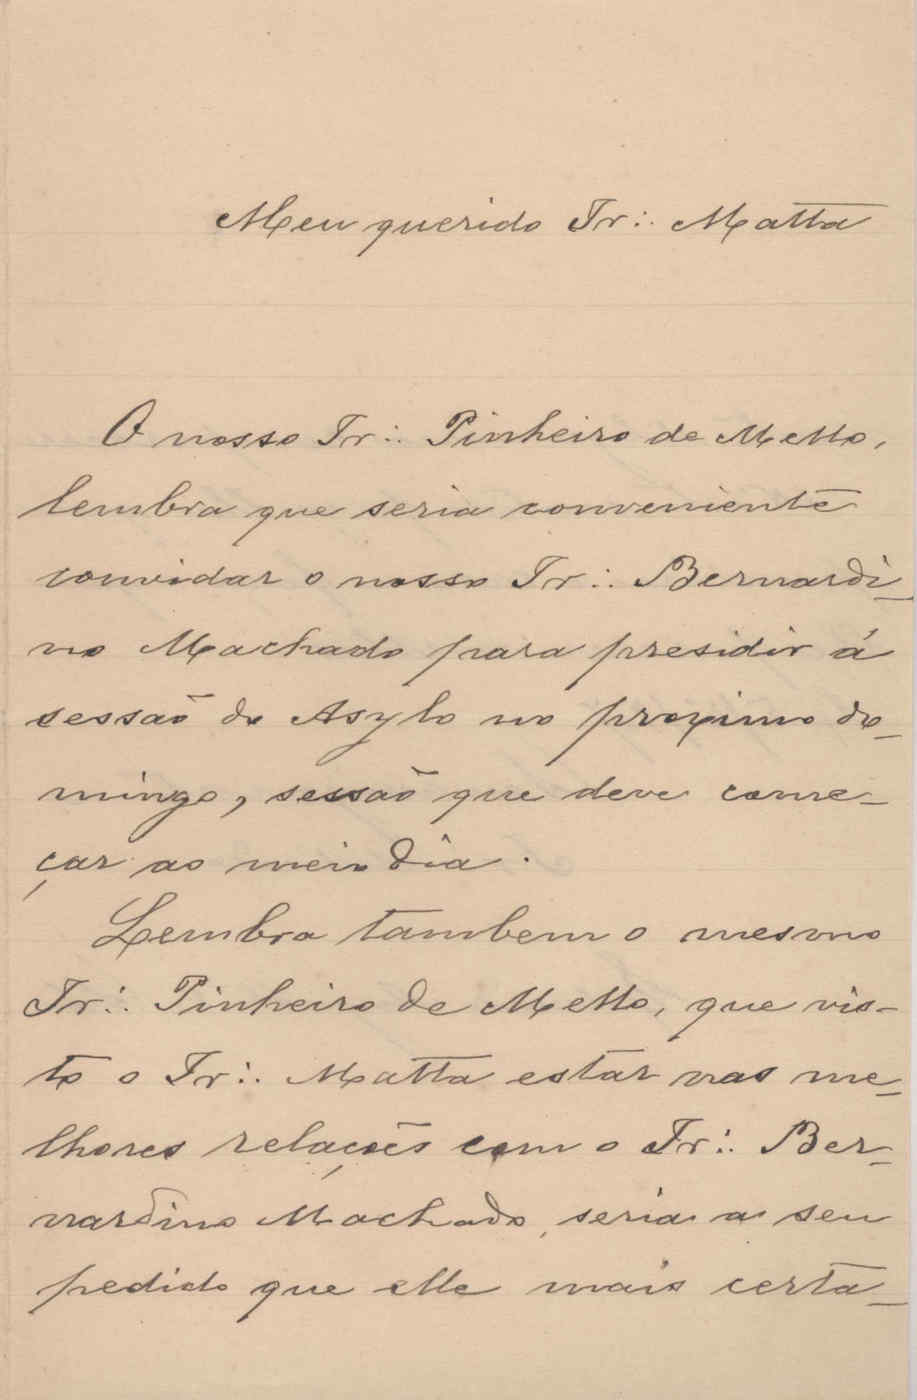 Meu querido Ir∴ Matta
O nosso Ir∴ Pinheiro de Mello,
lembra que seria conveniente
convidar o nosso Ir∴ Bernardi-
no Machado para presidir á
sessaõ do Asylo no proximo do-
mingo, sessaõ que deve come-
çar ao meio dia.
Lembra tambem o mesmo
Ir∴ Pinheiro de Mello, que vis-
to o Ir∴ Matta estar nas me-
lhores relaçoẽs com o Ir∴ Ber-
nardino Machado, seria a seu
pedido que elle mais certa-